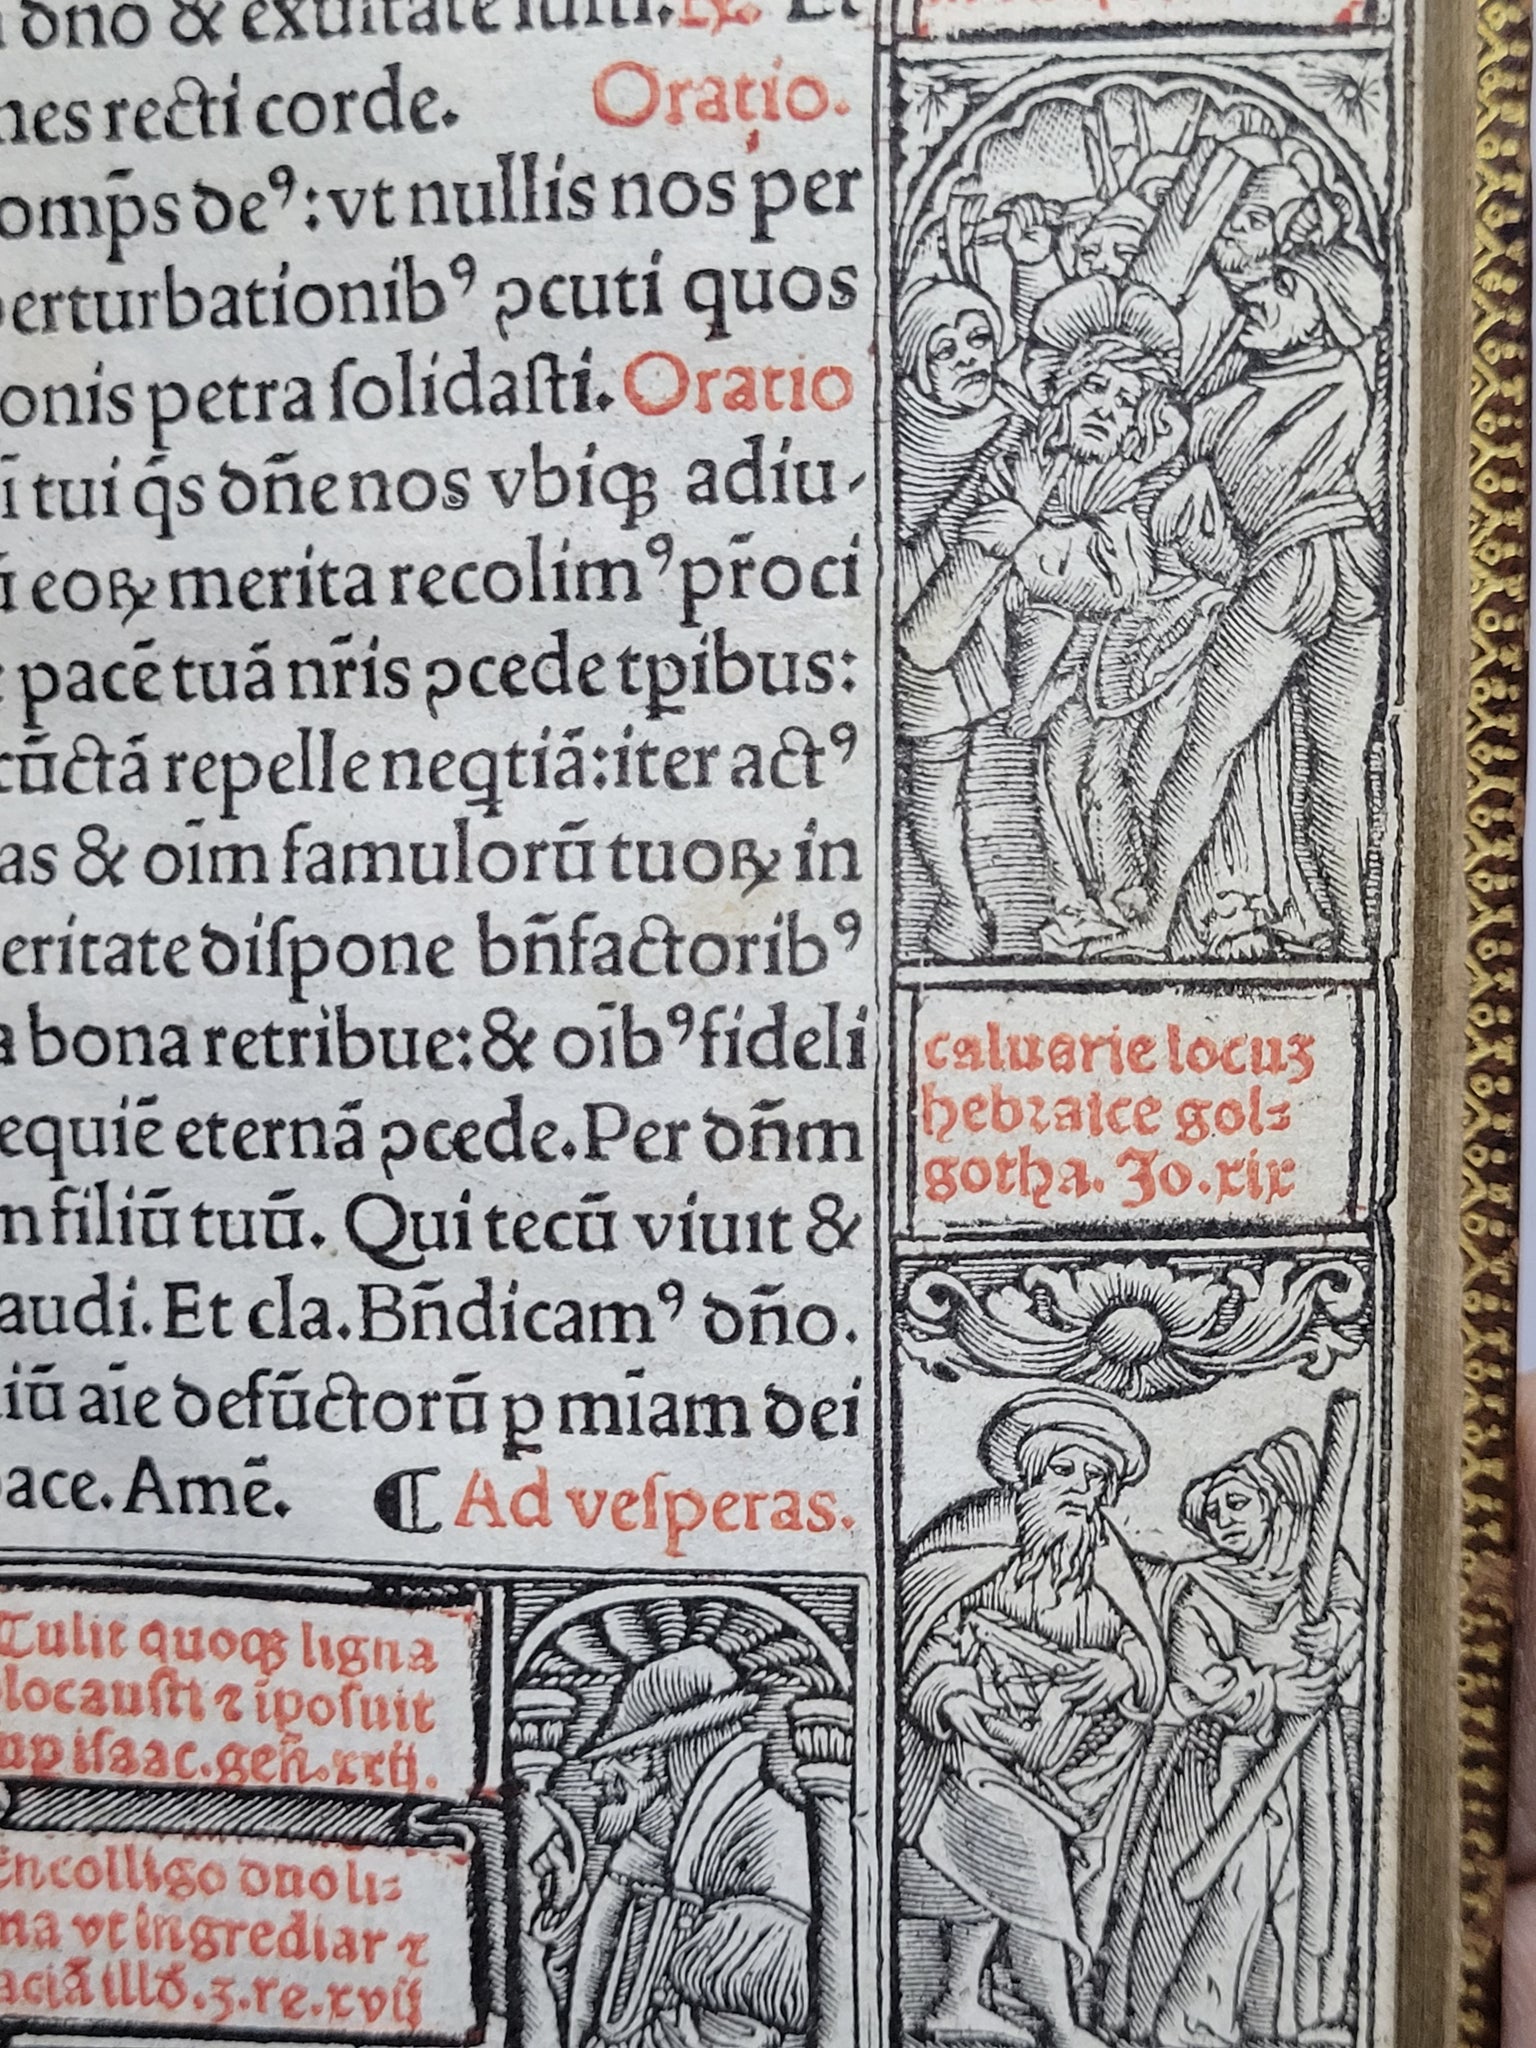 dno & exultate iusti. ℟. Et
nes recti corde. Oratio.
omp̄s deꝰ: vt nullis nos per
perturbationibꝰ ꝯcuti quos
onis petra ſolidaſti. Oratio
ī tui q̄s dn̄e nos vbiqꝫ adiu-
ū eoꝝ merita recolimꝰ pr̄oci
pacē tuā nr̄is ꝯcede tꝑibus:
cūctā repelle neqtiā: iter actꝰ
as & oīm famulorū tuoꝝ in
eritate diſpone bn̄factoribꝰ
a bona retribue: & oībꝰ fideli
equiē eternā ꝯcede. Per dn̄m
n filiū tuū. Qui tecū viuit &
audi. Et cla. Bn̄dicamꝰ dn̄o.
iū aīe defūctorū ꝑ mīam dei
pace. Amē. ⸿ Ad veſperas.
caluarie locuꝫ
hebꝛaice gol⸗
gotha. Jo. xix
Tulit quoqꝫ ligna
locauſti ⁊ īpoſuit
sup iſaac. gen̄. xxij.
En colligo duo li⸗
na vt ingrediar ⁊
aciā illd̄. 3. re. xvij